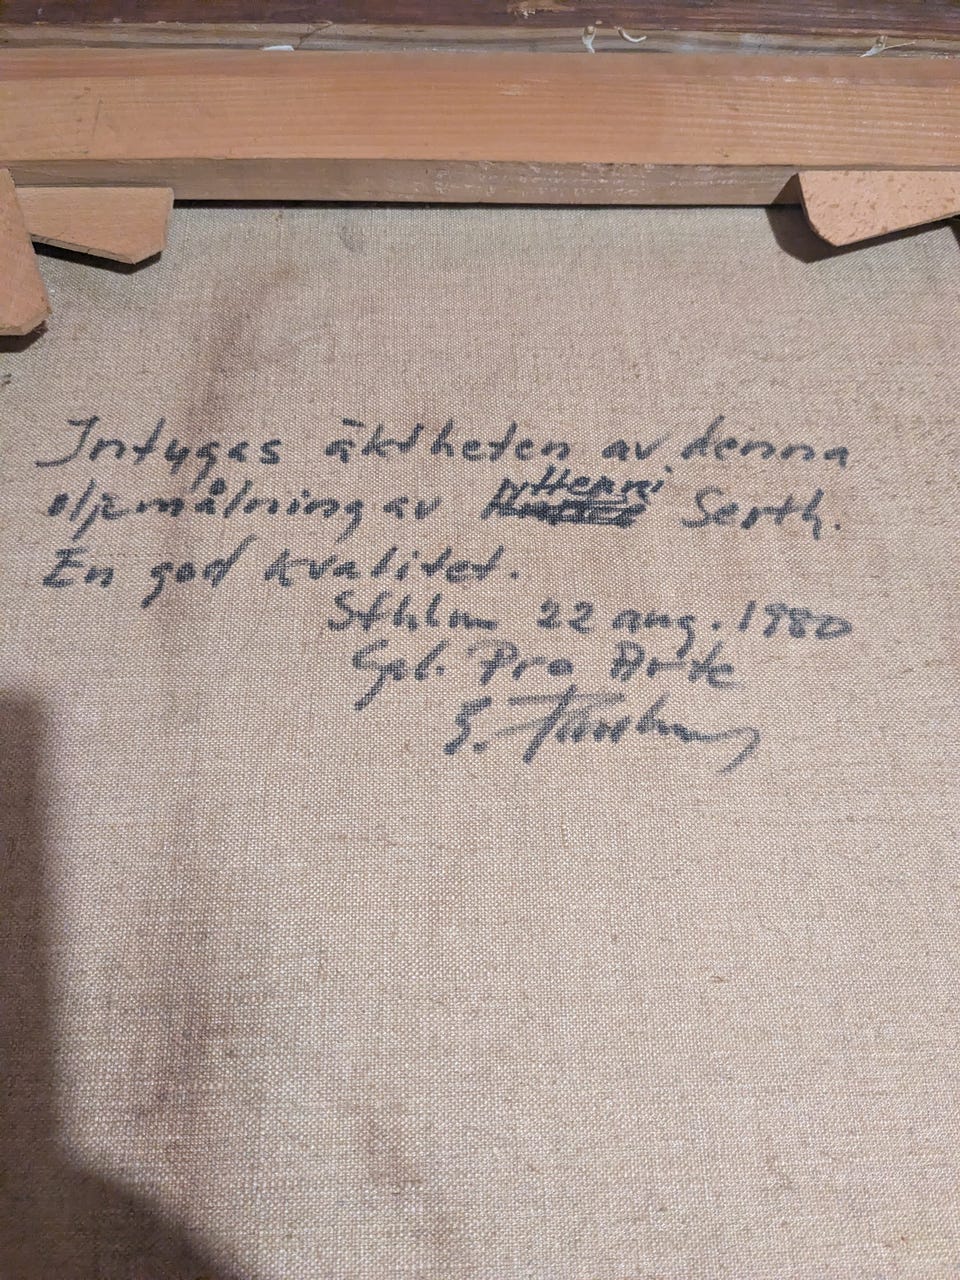 Intygas äktheten av denna
oljemålning av Henri Serth.
En god kvalitet.
Sthlm 22 aug. 1980
Gal. Pro Arte